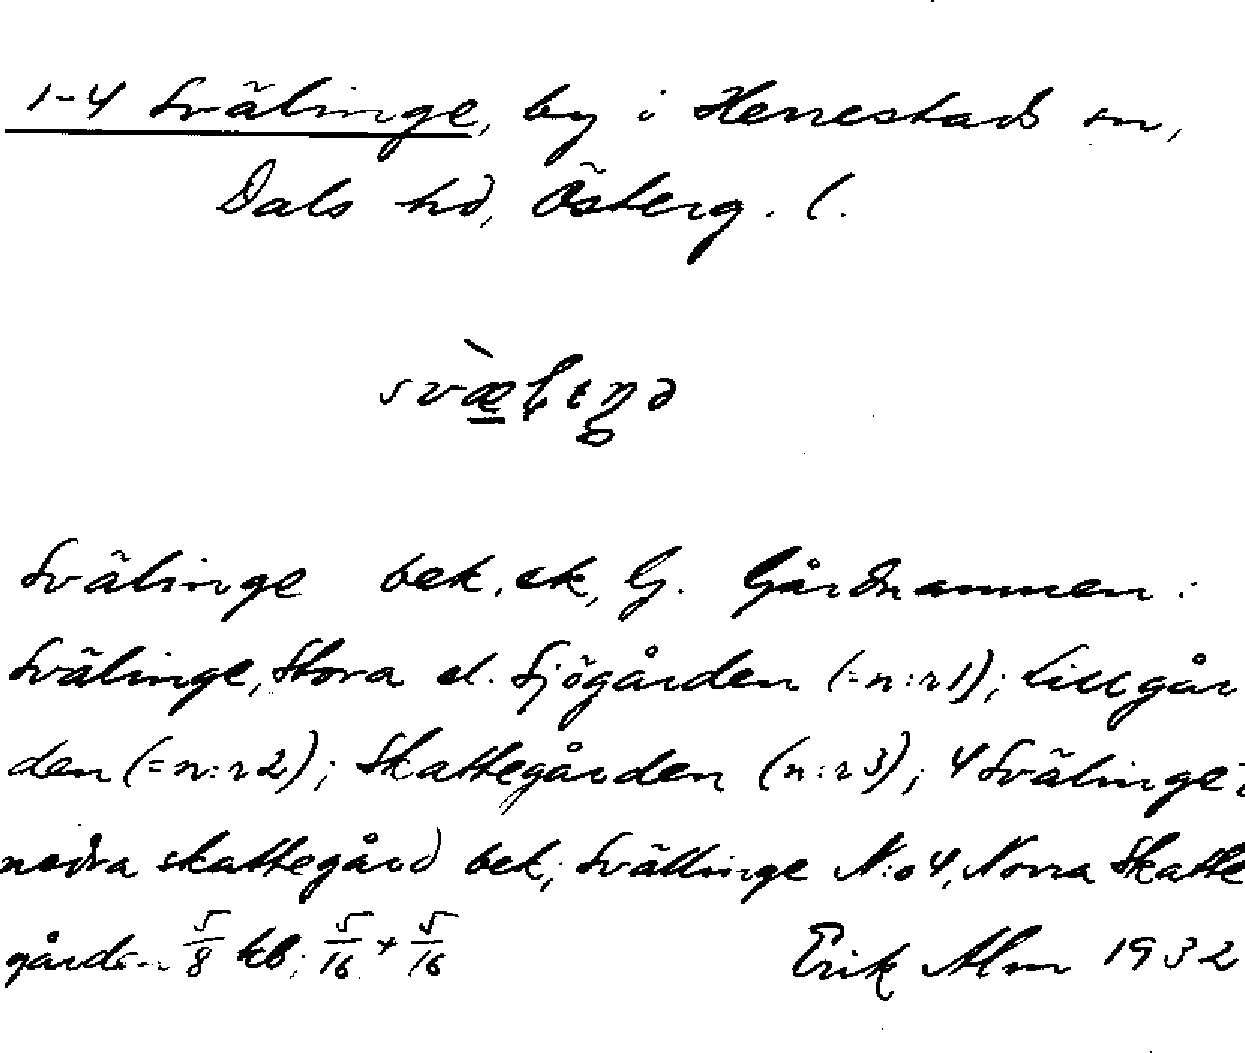 1-4 Svälinge, by i Herrestads sn,
Dals hd, Österg. l.
Svälinge bek. ek, G. Gårdnamnen:
Svälinge, Stora el. Sjögården (=n:r1); Lillgår
den (=n:r2); Skattegården (n:r3); 4 Svälinge:
nedra skattegård bek; Svällinge N:o 4, Norra Skatte
gården 5/8 kb; 5/16 + 5/16 Erik Alm 1932